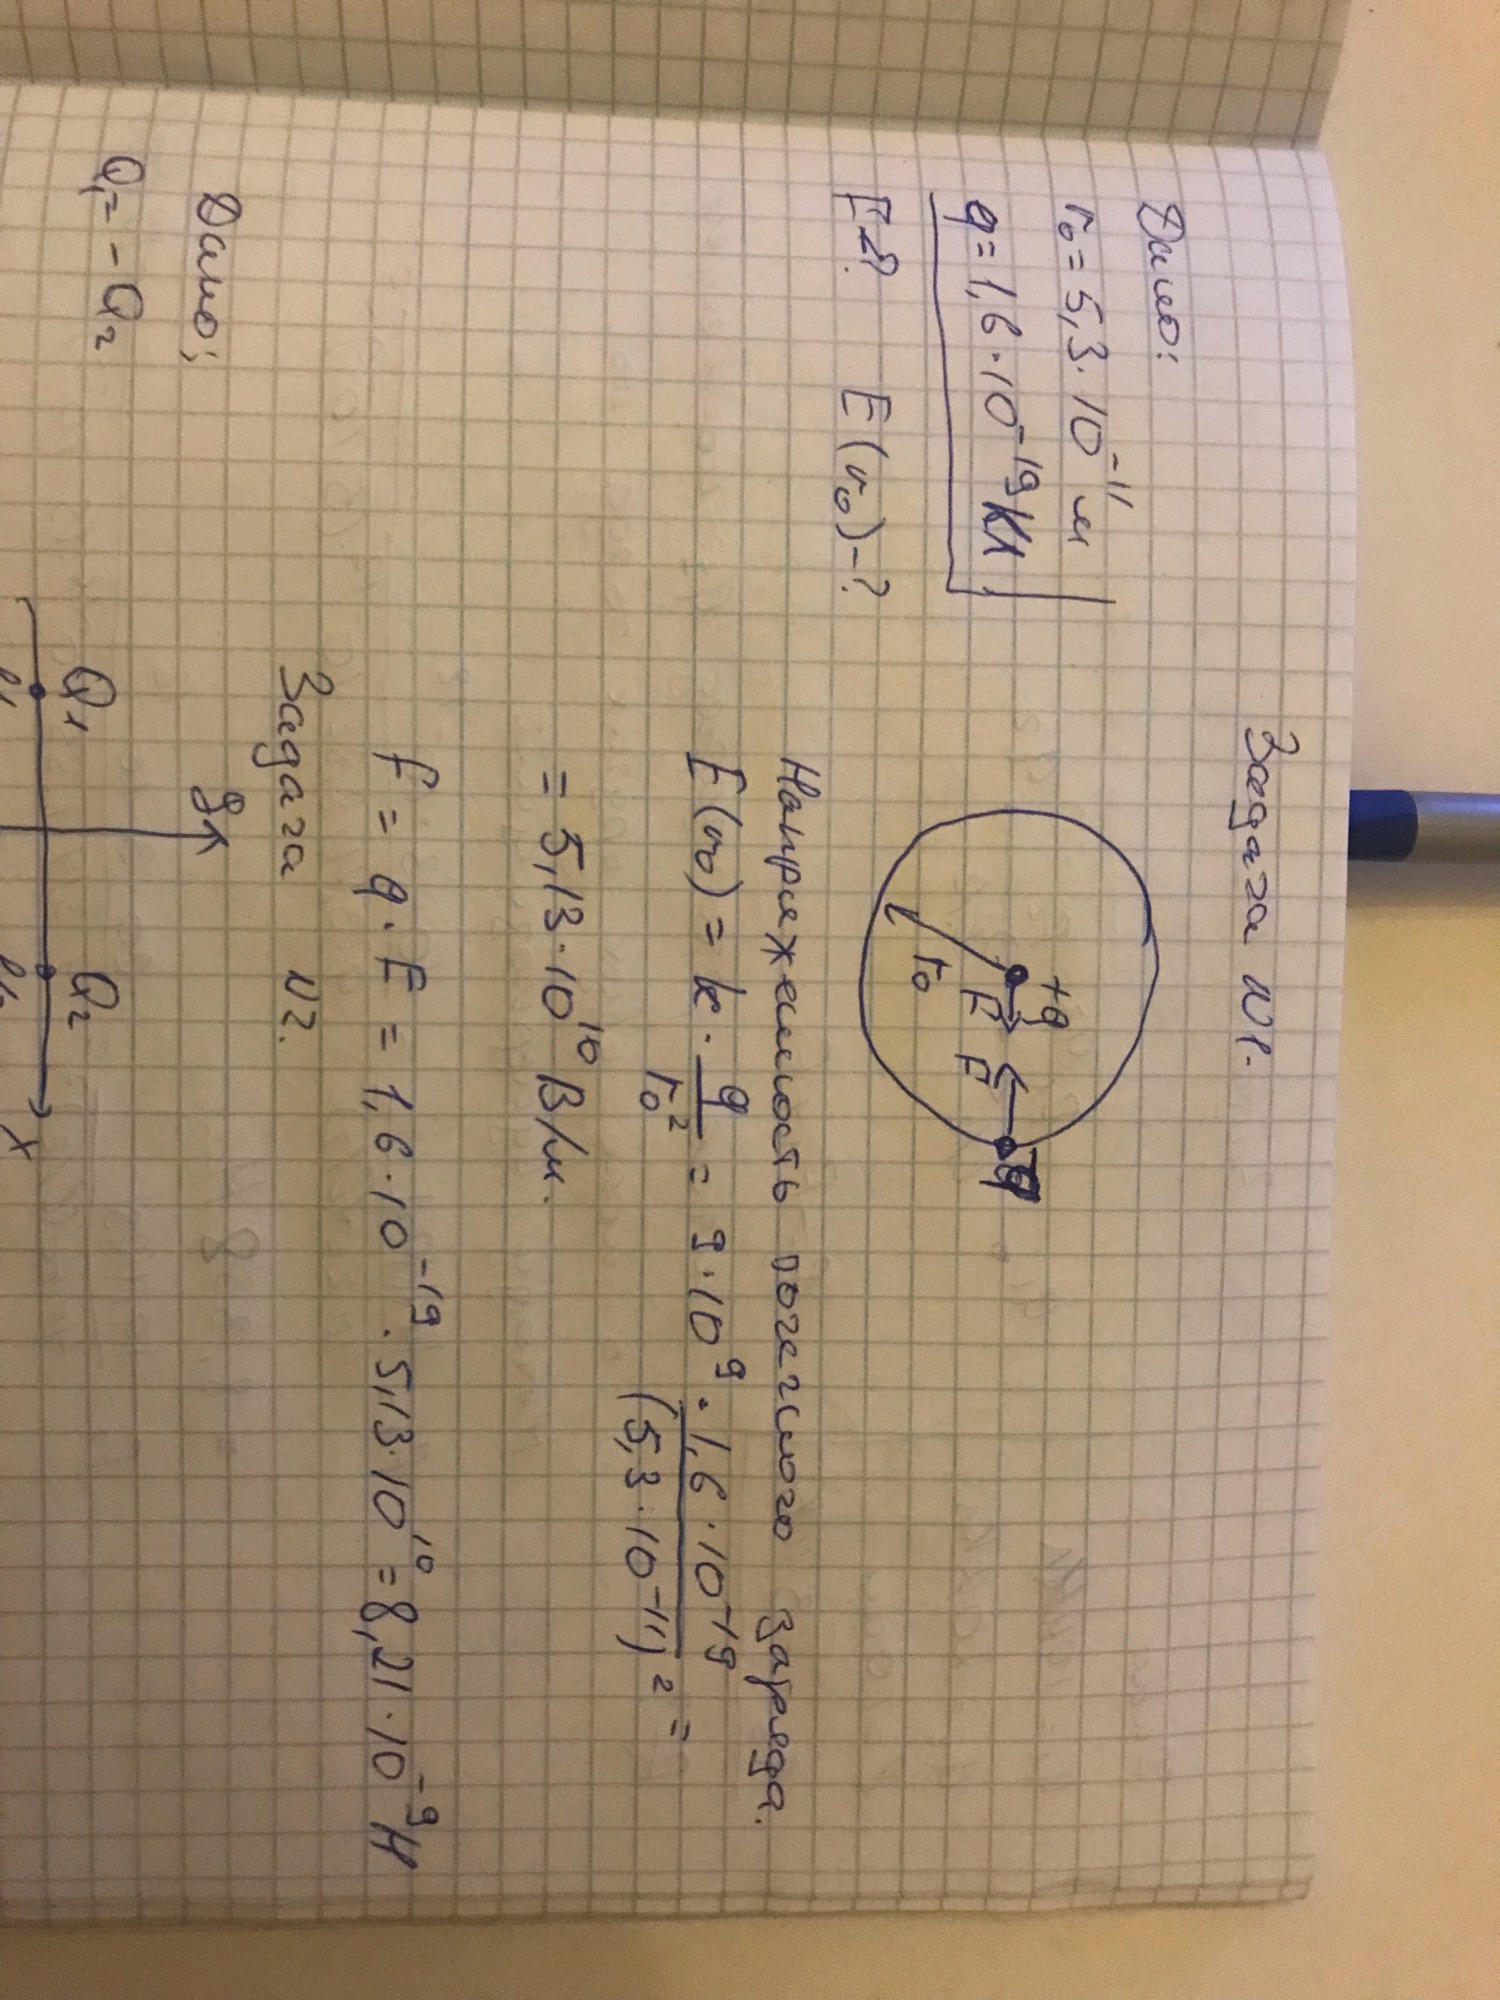 Задача №1.
Дано:
r₀ = 5,3·10⁻¹¹ м
q = 1,6·10⁻¹⁹ Кл
F-? E(r₀)-?
+q -q
F F
r₀
Напряженность точечного заряда.
E(r₀) = k · q/r₀² = 9·10⁹ · 1,6·10⁻¹⁹/(5,3·10⁻¹¹)² =
= 5,13·10¹⁰ В/м.
F = q·E = 1,6·10⁻¹⁹ · 5,13·10¹⁰ = 8,21·10⁻⁹ Н
Задача №2.
Дано:
y
Q₁ = -Q₂
Q₁ Q₂
x